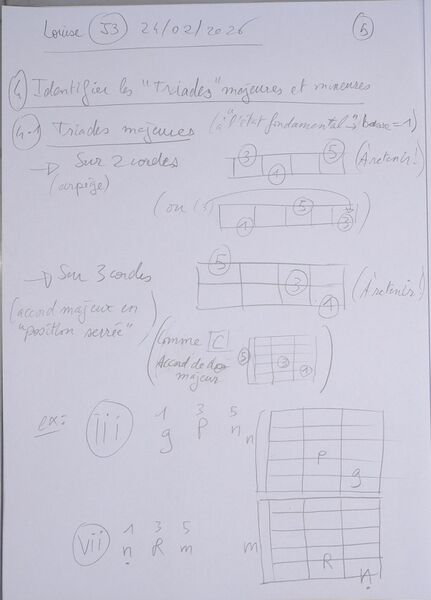 Louise 53 24/02/2026 5
4 Identifier les "Triades" majeures et mineures
4.1 Triades majeures (à "l'état fondamental" → basse = 1)
→ Sur 2 cordes
(arpège)
3 5
1
(À retenir!)
(ou
5
1 3
)
→ Sur 3 cordes
(accord majeur en
"position serrée")
5
3
1
(À retenir!)
(Comme C
Accord de do
majeur
5 3 1
)
ex:
iii
1 3 5
g P n
n
P
g
vii
1 3 5
n R m
m
R
n